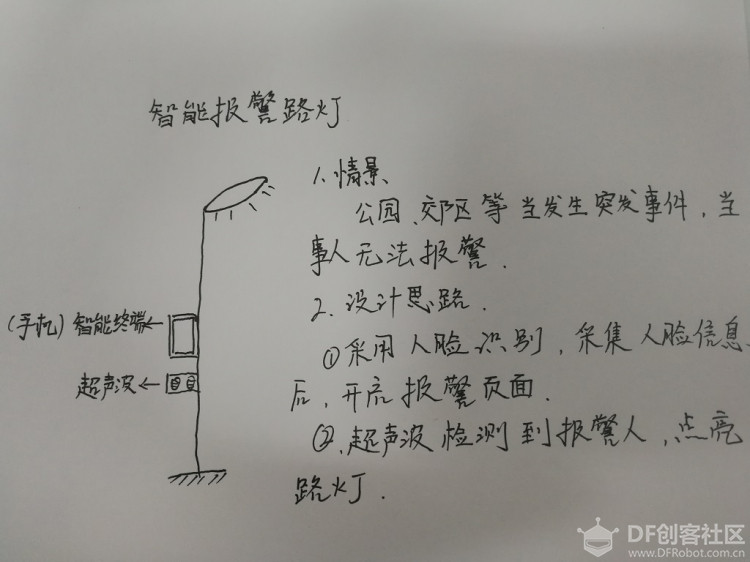 智能报警路灯
1、情景
公园、郊区等当发生突发事件，当
事人无法报警.
2、设计思路.
①采用人脸识别，采集人脸信息
后，开启报警页面.
②、超声波检测到报警人，点亮
路灯.
(手机)智能终端
超声波
DF创客社区
www.DFRobot.com.cn